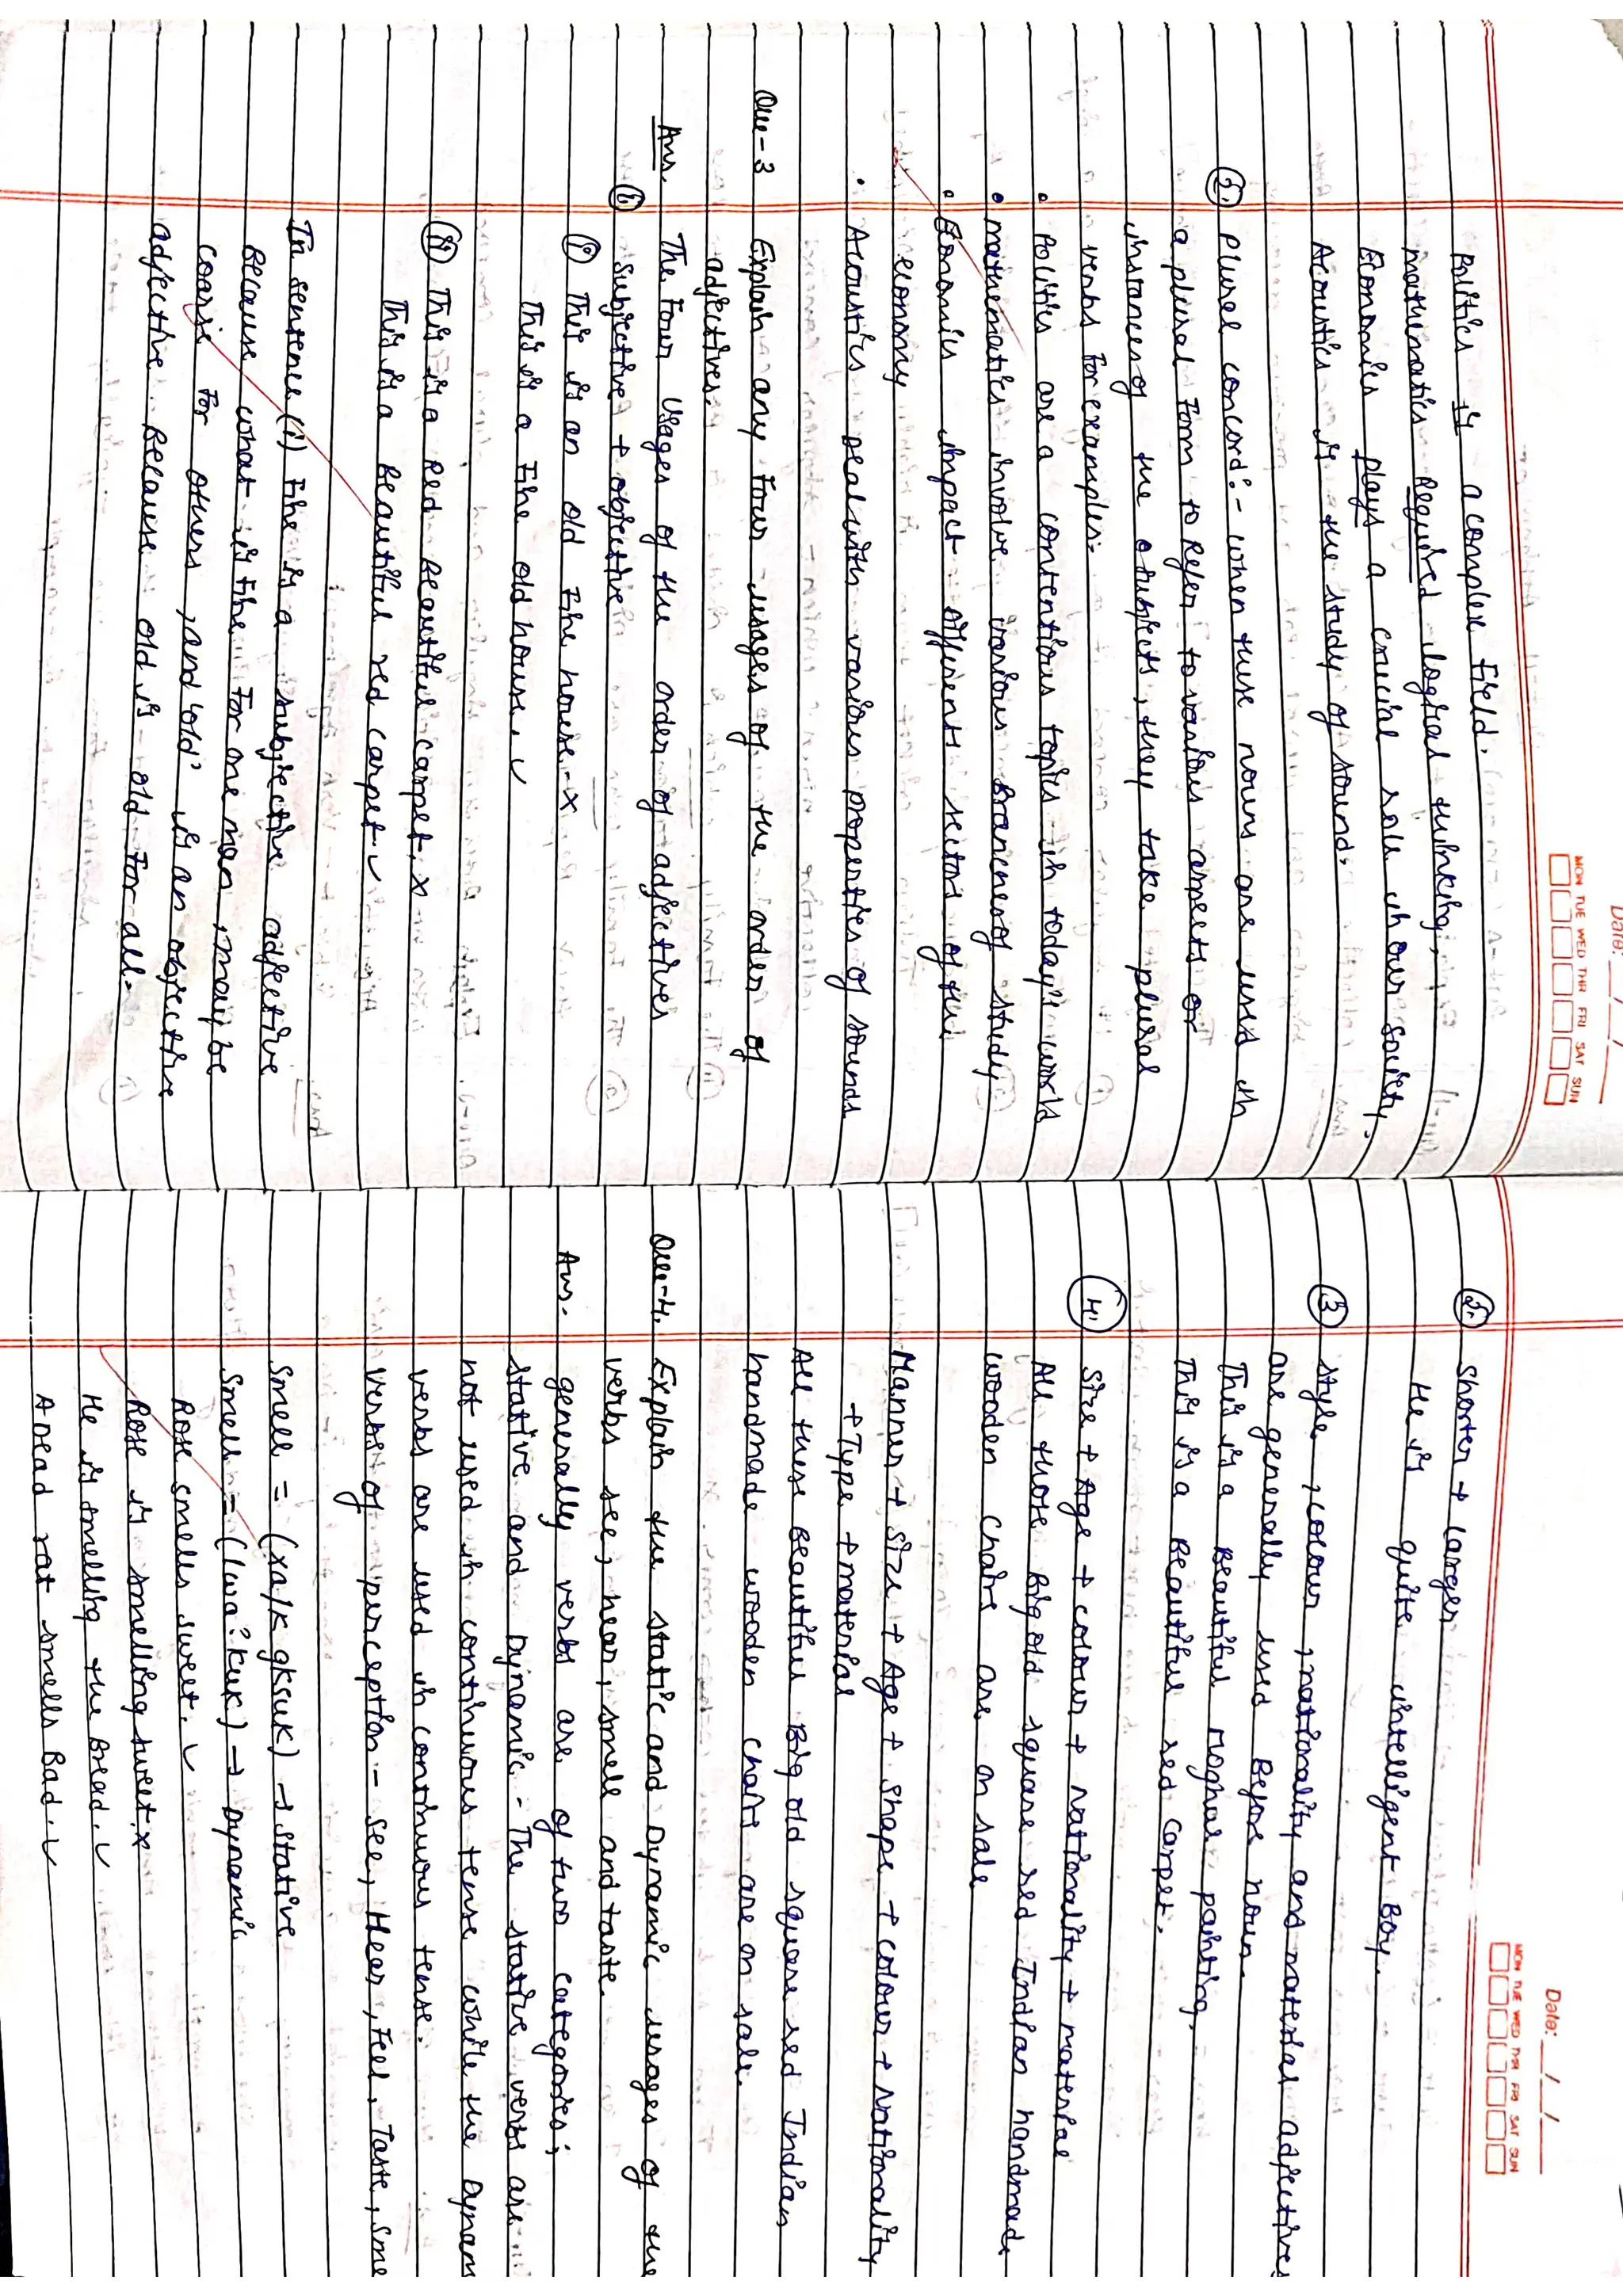 Date: __/__/__
MON TUE WED THR FRI SAT SUN
Politics is a complex field.
mathematics Required logical thinking,
Economics plays a crucial role in our society.
Acoustics is the study of sound.
2. plural concord:- when these nouns are used in
a plural form to Refer to various aspects or
instances of the subjects, they take plural
verbs for examples:
• Politics are a contentious topics in today's world
• mathematics involve various Branches of study
• Economics impact different sectors of the
economy
• Acoustics deal with various properties of sounds
Que-3 Explain any four usages of the order of
adjectives.
Ans. The four usages of the order of adjectives
1. Subjective + objective
(i) This is an old fine house. x
This is a fine old house. ✓
(ii) This is a Red Beautiful carpet. x
This is a Beautiful red carpet ✓
In sentence (i) fine is a subjective adjective
Because what is fine for one man, may be
coarse for others, and 'old' is an objective
adjective Because old is old for all.
Date: __/__/__
MON TUE WED THR FRI SAT SUN
2. Shorter + larger
He is quite intelligent Boy.
3 Style, colour, nationality and material adjectives
are generally used Before noun.
This is a Beautiful Moghal painting.
This is a Beautiful red carpet.
4. Size + Age + colour + nationality + material
All those Big old square red Indian handmade
wooden chairs are on sale
Manner + size + Age + shape + colour + Nationality
+ Type + material
All these Beautiful Big old square red Indian
handmade wooden chairs are on sale.
Que-4. Explain the static and Dynamic usages of the
verbs see, hear, smell and taste.
Ans. generally verbs are of two categories;
stative and Dynamic - The stative verbs are
not used in continuous tense while the Dynam
verbs are used in continuous tense.
verbs of perception:- see, Hear, Feel, Taste, sme
Smell = (xa/k gksuk) → stative
Smell = (lwa?kuk) → Dynamic
Rose smells sweet. ✓
Rose is smelling sweet. x
He is smelling the Bread. ✓
A Dead rat smells Bad. ✓